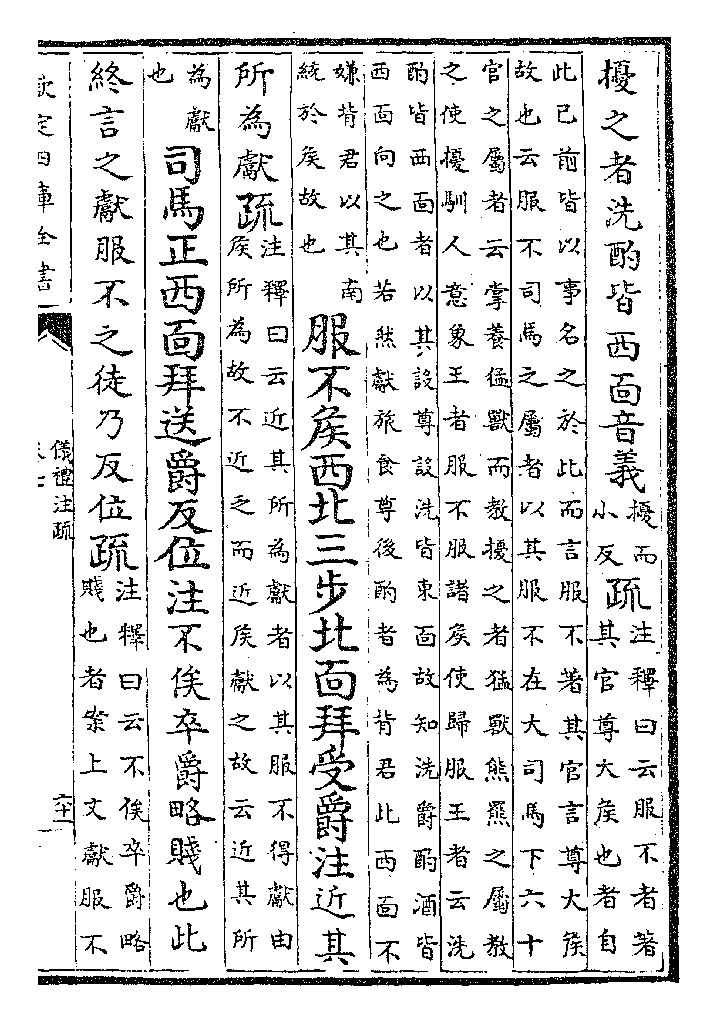 擾之者洗酌皆西面音義擾而小反疏注釋曰云服不者著其官尊大侯也者自
此已前皆以事名之於此而言服不著其官言尊大侯
故也云服不司馬之屬者以其服不在大司馬下六十
官之屬者云掌養猛獸而教擾之者猛獸熊羆之屬教
之使擾馴人意象王者服不服諸侯使歸服王者云洗
酌皆西面者以其設尊設洗皆東面故知洗爵酌酒皆
西面向之也若然獻旅食尊後酌者為背君此西面不
嫌背君以其南統於侯故也服不侯西北三步北面拜受爵注近其
所為獻疏注釋曰云近其所為獻者以其服不得獻由侯所為故不近之而近侯獻之故云近其所
為獻也司馬正西面拜送爵反位注不俟卒爵略賤也此
終言之獻服不之徒乃反位疏注釋曰云不俟卒爵略賤也者案上文獻服不
欽定四庫全書
儀禮注疏
六十一